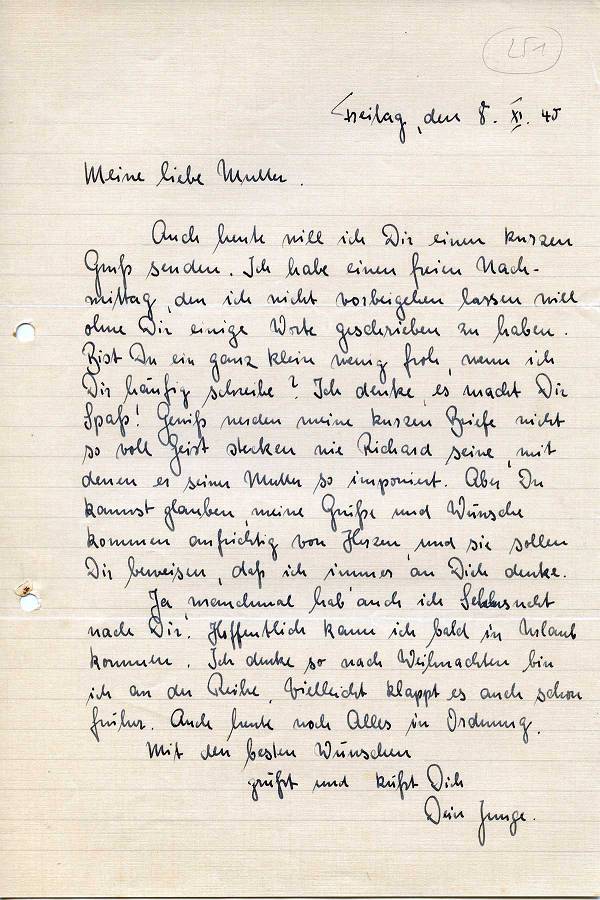 251
Freitag, den 8. XI. 40
Meine liebe Mutter.
Auch heute will ich Dir einen kurzen
Gruß senden. Ich habe einen freien Nach-
mittag, den ich nicht vorbeigehen lassen will
ohne Dir einige Worte geschrieben zu haben.
Bist Du ein ganz klein wenig froh, wenn ich
Dir häufig schreibe? Ich denke, es macht Dir
Spaß! Gewiß werden meine kurzen Briefe nicht
so voll Geist stecken wie Richard seine, mit
denen er seiner Mutter so imponiert. Aber Du
kannst glauben, meine Grüße und Wünsche
kommen aufrichtig von Herzen, und sie sollen
Dir beweisen, daß ich immer an Dich denke.
Ja, manchmal hab' auch ich Sehnsucht
nach Dir. Hoffentlich kann ich bald in Urlaub
kommen. Ich denke so nach Weihnachten bin
ich an der Reihe, vielleicht klappt es auch schon
früher. Auch heute noch Alles in Ordnung.
Mit den besten Wünschen
grüßt und küßt Dich
Dein Junge.